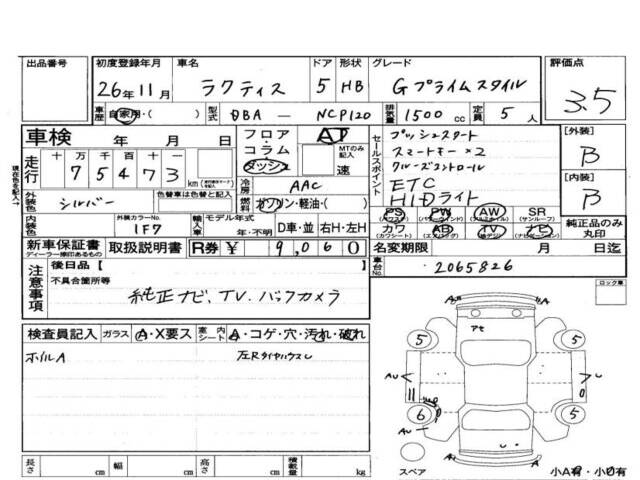 出品番号 初度登録年月 車名 ドア 形状 グレード 評価点
26年11月 ラクティス 5 HB Gプライムスタイル 3.5
車歴 自家用・( ) 型式 DBA — NCP120 排気量 1500 cc 定員 5 人
車検 年 月 日 フロア・コラム・ダッシュ AT MTのみ記入 速 セールスポイント プッシュスタート [外装]
スマートキー×2 B
走行 十万千百十 75473 km 冷房 AAC クルーズコントロール
ETC [内装]
外装色 シルバー 色替車は色替と記入 燃料 ガソリン・軽油・( ) HIDライト B
内装色 外装カラーNo. 1F7 輸入車 モデル年式 年・不明 D車・並 右H・左H PS PW AW SR (サンルーフ)
カワ (カワシート) AB (エアバッグ) TV ナビ (ナビゲーション) 純正品のみ丸印
新車保証書 ディーラー捺印あるもの 取扱説明書 R券 ¥ 9,060 名変期限 月 日迄
注意事項 後日品 [ ] 車台No. 2065826
不具合箇所等 ロック車
純正ナビ、TV、バックカメラ
検査員記入 ガラス A・X要ス 室内 シート A・コゲ・穴・汚れ・破れ
ホイルA 左RタイヤハウスU
アセ
5 5
AU U
6 5
AU
U
A
長さ cm 幅 cm 高さ cm 積載量 kg スペア 小A有・小U有